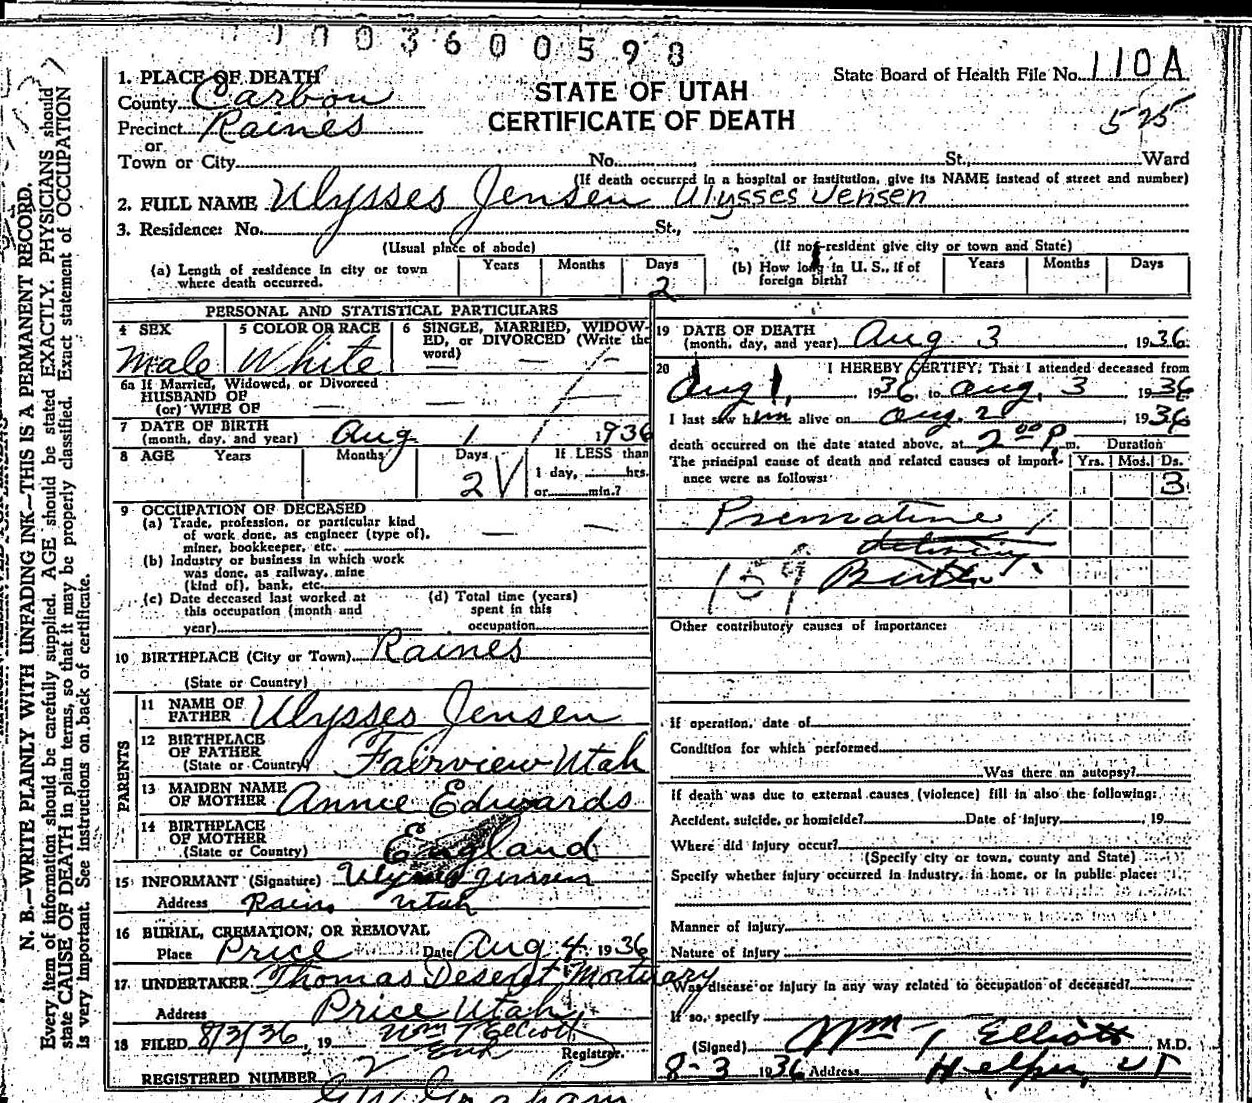 0 0 3 6 0 0 5 9 8
State Board of Health File No. 110A
STATE OF UTAH
CERTIFICATE OF DEATH
525
1. PLACE OF DEATH
County Carbon
Precinct Raines
or
Town or City No. St., Ward
(If death occurred in a hospital or institution, give its NAME instead of street and number)
2. FULL NAME Ulysses Jensen Ulysses Jensen
3. Residence: No. St.,
(Usual place of abode) (If non-resident give city or town and State)
(a) Length of residence in city or town where death occurred. Years Months Days 2
(b) How long in U. S., if of foreign birth? Years Months Days
PERSONAL AND STATISTICAL PARTICULARS
4 SEX Male
5 COLOR OR RACE White
6 SINGLE, MARRIED, WIDOWED, or DIVORCED (Write the word) —
6a If Married, Widowed, or Divorced
HUSBAND OF
(or) WIFE OF — —
7 DATE OF BIRTH
(month, day, and year) Aug 1 1936
8 AGE Years Months Days 2 If LESS than
1 day, hrs.
or min.?
9 OCCUPATION OF DECEASED
(a) Trade, profession, or particular kind
of work done, as engineer (type of),
miner, bookkeeper, etc. —
(b) Industry or business in which work
was done, as railway, mine
(kind of), bank, etc.
(c) Date deceased last worked at
this occupation (month and
year)
(d) Total time (years)
spent in this
occupation
10 BIRTHPLACE (City or Town) Raines
(State or Country)
PARENTS
11 NAME OF FATHER Ulysses Jensen
12 BIRTHPLACE OF FATHER
(State or Country) Fairview Utah
13 MAIDEN NAME OF MOTHER Annie Edwards
14 BIRTHPLACE OF MOTHER
(State or Country) England
15 INFORMANT (Signature) Ulysses Jensen
Address Rains Utah
16 BURIAL, CREMATION, OR REMOVAL
Place Price Date Aug 4 1936
17. UNDERTAKER Thomas Deseret Mortuary
Address Price Utah
18 FILED 8/3/36, 19 Wm T Elliott
Registrar.
REGISTERED NUMBER 2
G W Graham
19 DATE OF DEATH
(month, day, and year) Aug 3, 1936
20 I HEREBY CERTIFY: That I attended deceased from
Aug 1, 1936, to Aug. 3 1936
I last saw him alive on Aug. 2, 1936
death occurred on the date stated above, at 2 00 P. m. Duration
The principal cause of death and related causes of import- Yrs. Mos. Ds.
ance were as follows: 3
Premature
delivery
159 Birth
Other contributory causes of importance:
If operation, date of
Condition for which performed
Was there an autopsy?
If death was due to external causes (violence) fill in also the following:
Accident, suicide, or homicide? Date of injury , 19
Where did injury occur?
(Specify city or town, county and State)
Specify whether injury occurred in industry, in home, or in public place:
Manner of injury
Nature of injury
Was disease or injury in any way related to occupation of deceased?
If so, specify
(Signed) Wm T Elliott M.D.
8-3 1936 Address Helper, UT
N. B.—WRITE PLAINLY WITH UNFADING INK—THIS IS A PERMANENT RECORD.
Every item of information should be carefully supplied. AGE should be stated EXACTLY. PHYSICIANS should
state CAUSE OF DEATH in plain terms, so that it may be properly classified. Exact statement of OCCUPATION
is very important. See instructions on back of certificate.